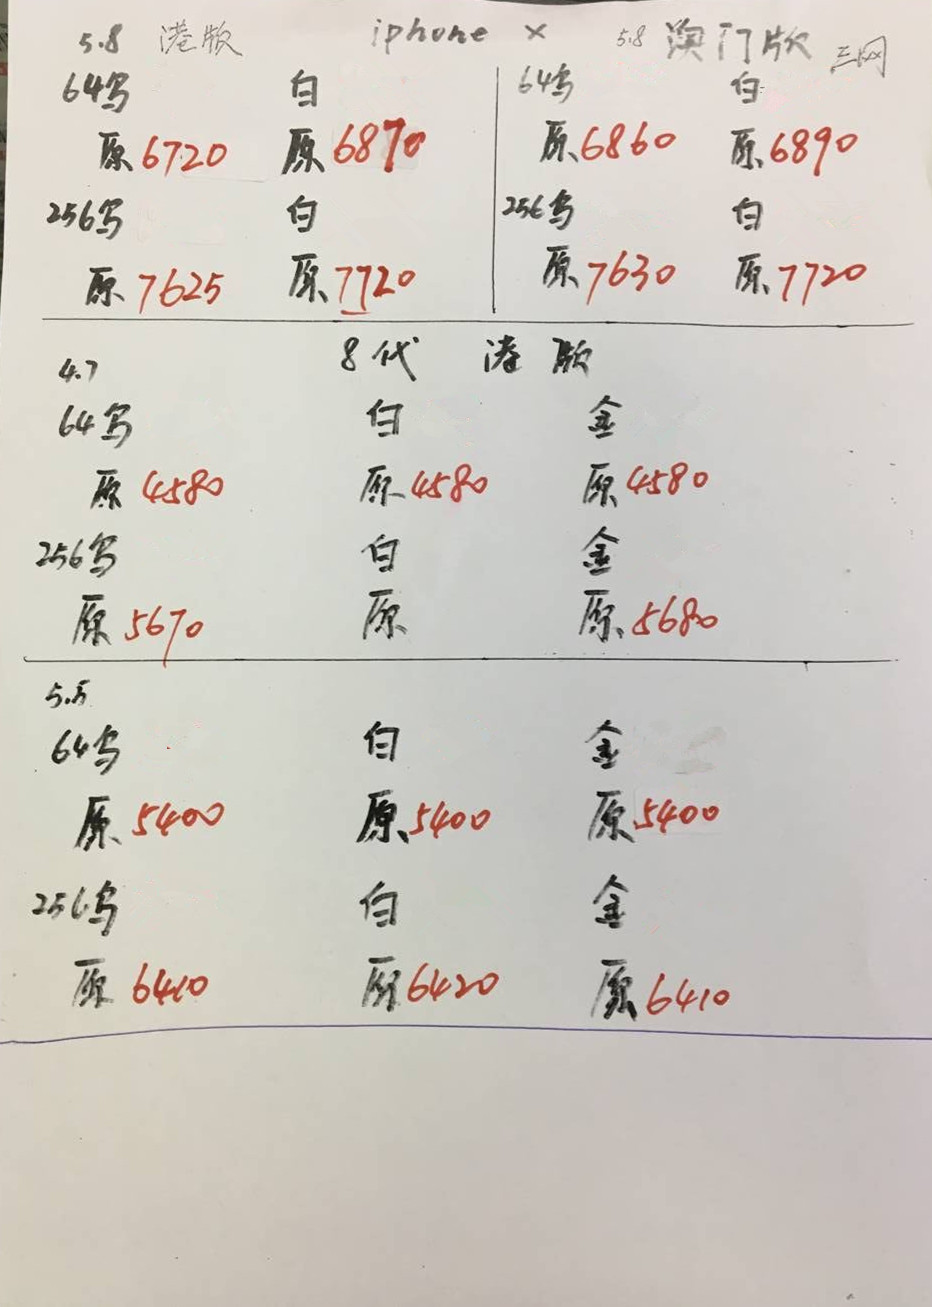 5.8 港版 iphone X 5.8 澳门版 三网
64乌 白 64乌 白
原6720 原6870 原6860 原6890
256乌 白 256乌 白
原7625 原7720 原7630 原7720
4.7 8代 港版
64乌 白 金
原4580 原4580 原4580
256乌 白 金
原5670 原 原5680
5.5
64乌 白 金
原5400 原5400 原5400
256乌 白 金
原6410 原6420 原6410